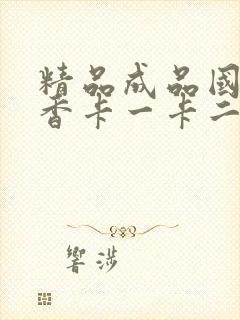 精品成品國
香卡一卡二
響涉